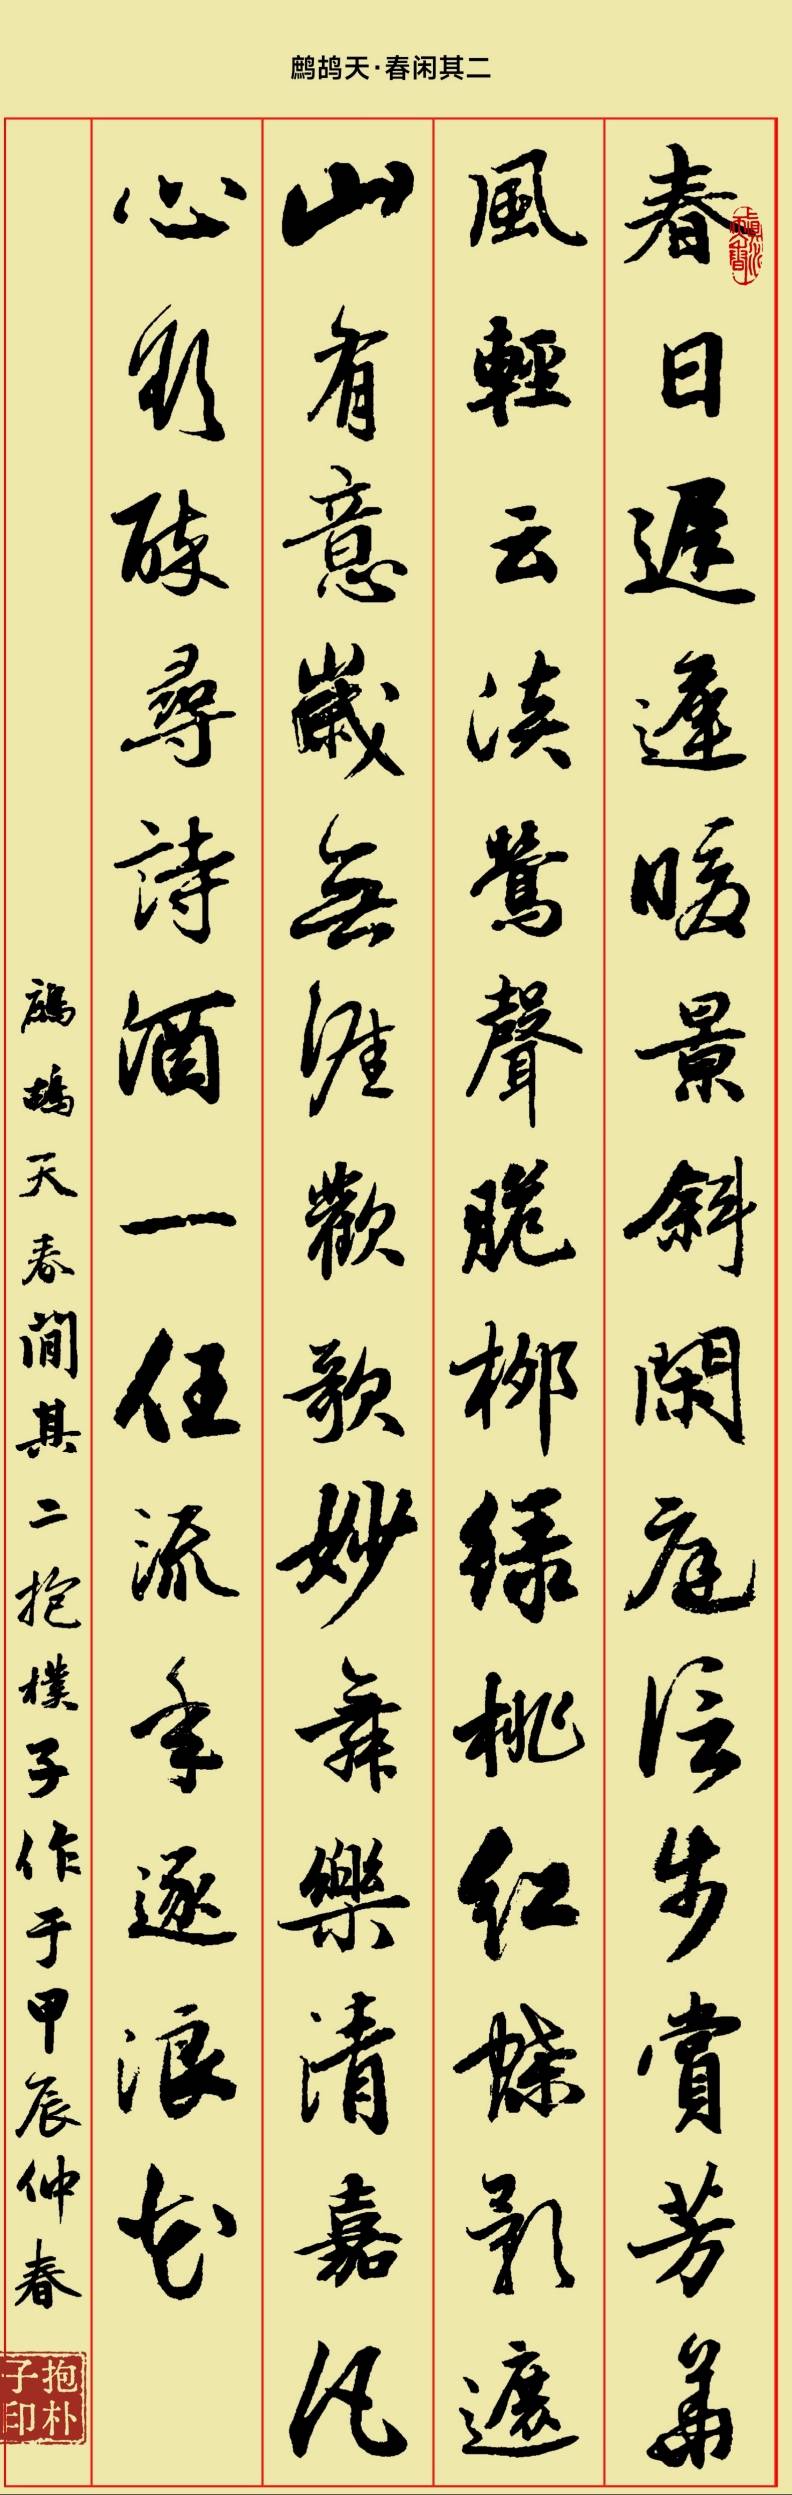 鹧鸪天·春闲其二
春日遲遲暖景斜閑庭信步賞芳華
風輕云淡鶯聲脆柳綠桃紅蝶影遮
山有意歲無涯歡歌妙舞樂清嘉凡
心破尋詩酒一任流年逐浪花
鷓鴣天春閒其二抱樸子作于甲辰仲春
抱朴子印